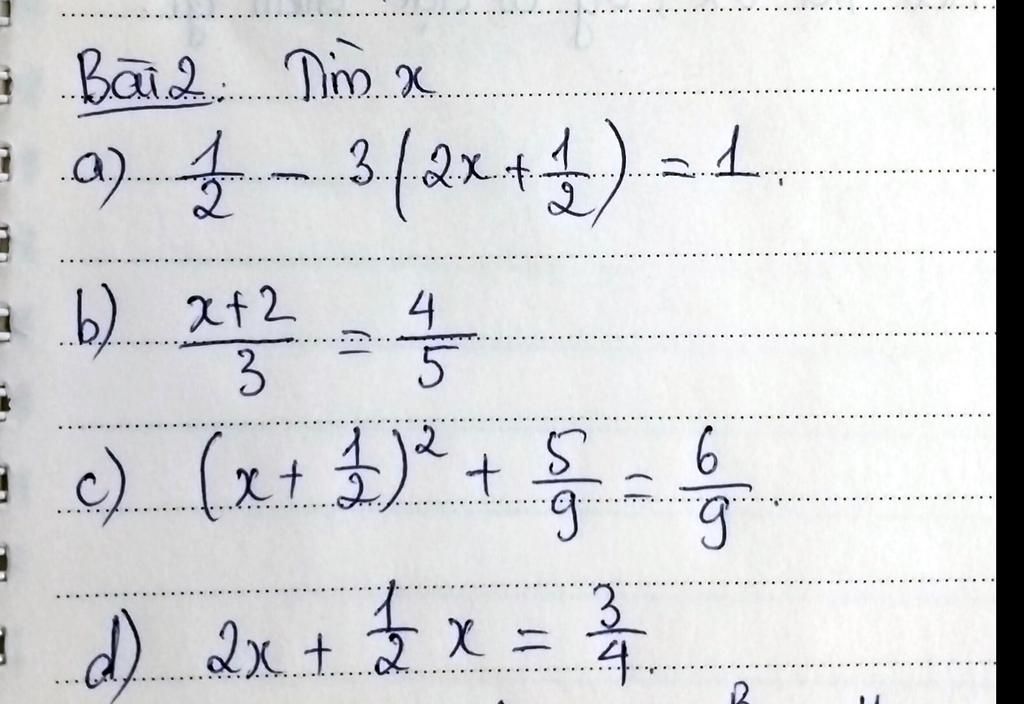 Bài 2: Tìm x
a) 1/2 - 3(2x + 1/2) = 1.
b) (x+2)/3 = 4/5
c) (x + 1/2)² + 5/9 = 6/9.
d) 2x + 1/2 x = 3/4.